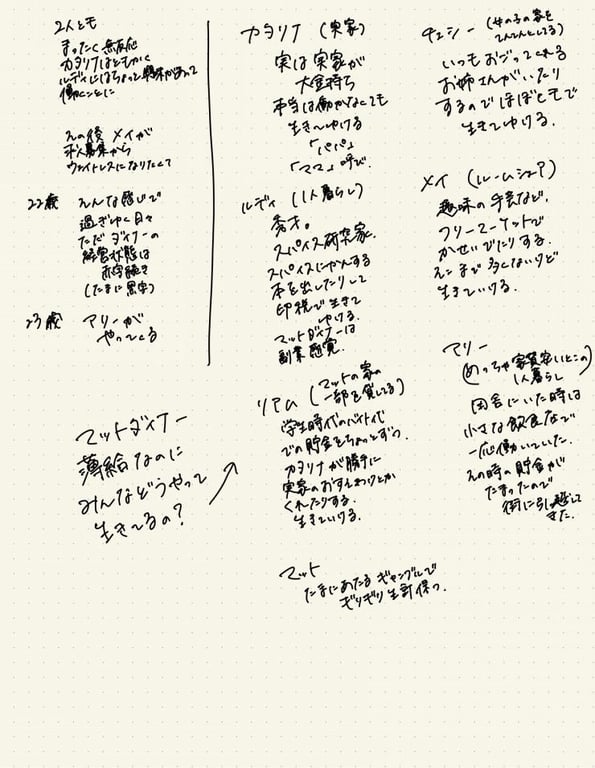 2人とも
まったく無反応
カタリナはともかく
ルディにはちょっと興味があって
働くことに
その後 メイが
求人募集から
ウェイトレスになりたくて
22歳 そんな感じで
過ぎゆく日々
ただダイナーの
経営状態は
赤字続き
(たまに黒字)
23歳 アリーが
やってくる
マットダイナー
薄給なのに
みんなどうやって
生きてるの?
カタリナ (実家)
実は実家が
大金持ち
本当は働かなくても
生きてゆける
「パパ」
「ママ」呼び.
ルディ (1人暮らし)
秀才。
スパイス研究家.
スパイスにかんする
本を出したりして
印税で生きて
ゆける.
マットダイナーは
副業感覚.
リアム (マットの家の
一部を貸してる)
学生時代のバイト代
での貯金をちょっとずつ.
カタリナが勝手に
実家のおすそわけとか
くれたりする.
生きていける.
マット
たまにあたるギャンブルで
ギリギリ生計保つ.
チェシー (女の子の家を
てんてんとしてる)
いつもおごってくれる
お姉さんがいたり
するのでほぼヒモで
生きてゆける.
メイ (ルームシェア)
趣味の手芸など.
フリーマーケットで
かせいでたりする.
そこまで多くないけど
生きていける.
アリー
(めっちゃ家賃安いとこの
1人暮らし
田舎にいた時は
小さな飲食店で
一応働いていた.
その時の貯金が
たまったので
街に引っ越して
きた.